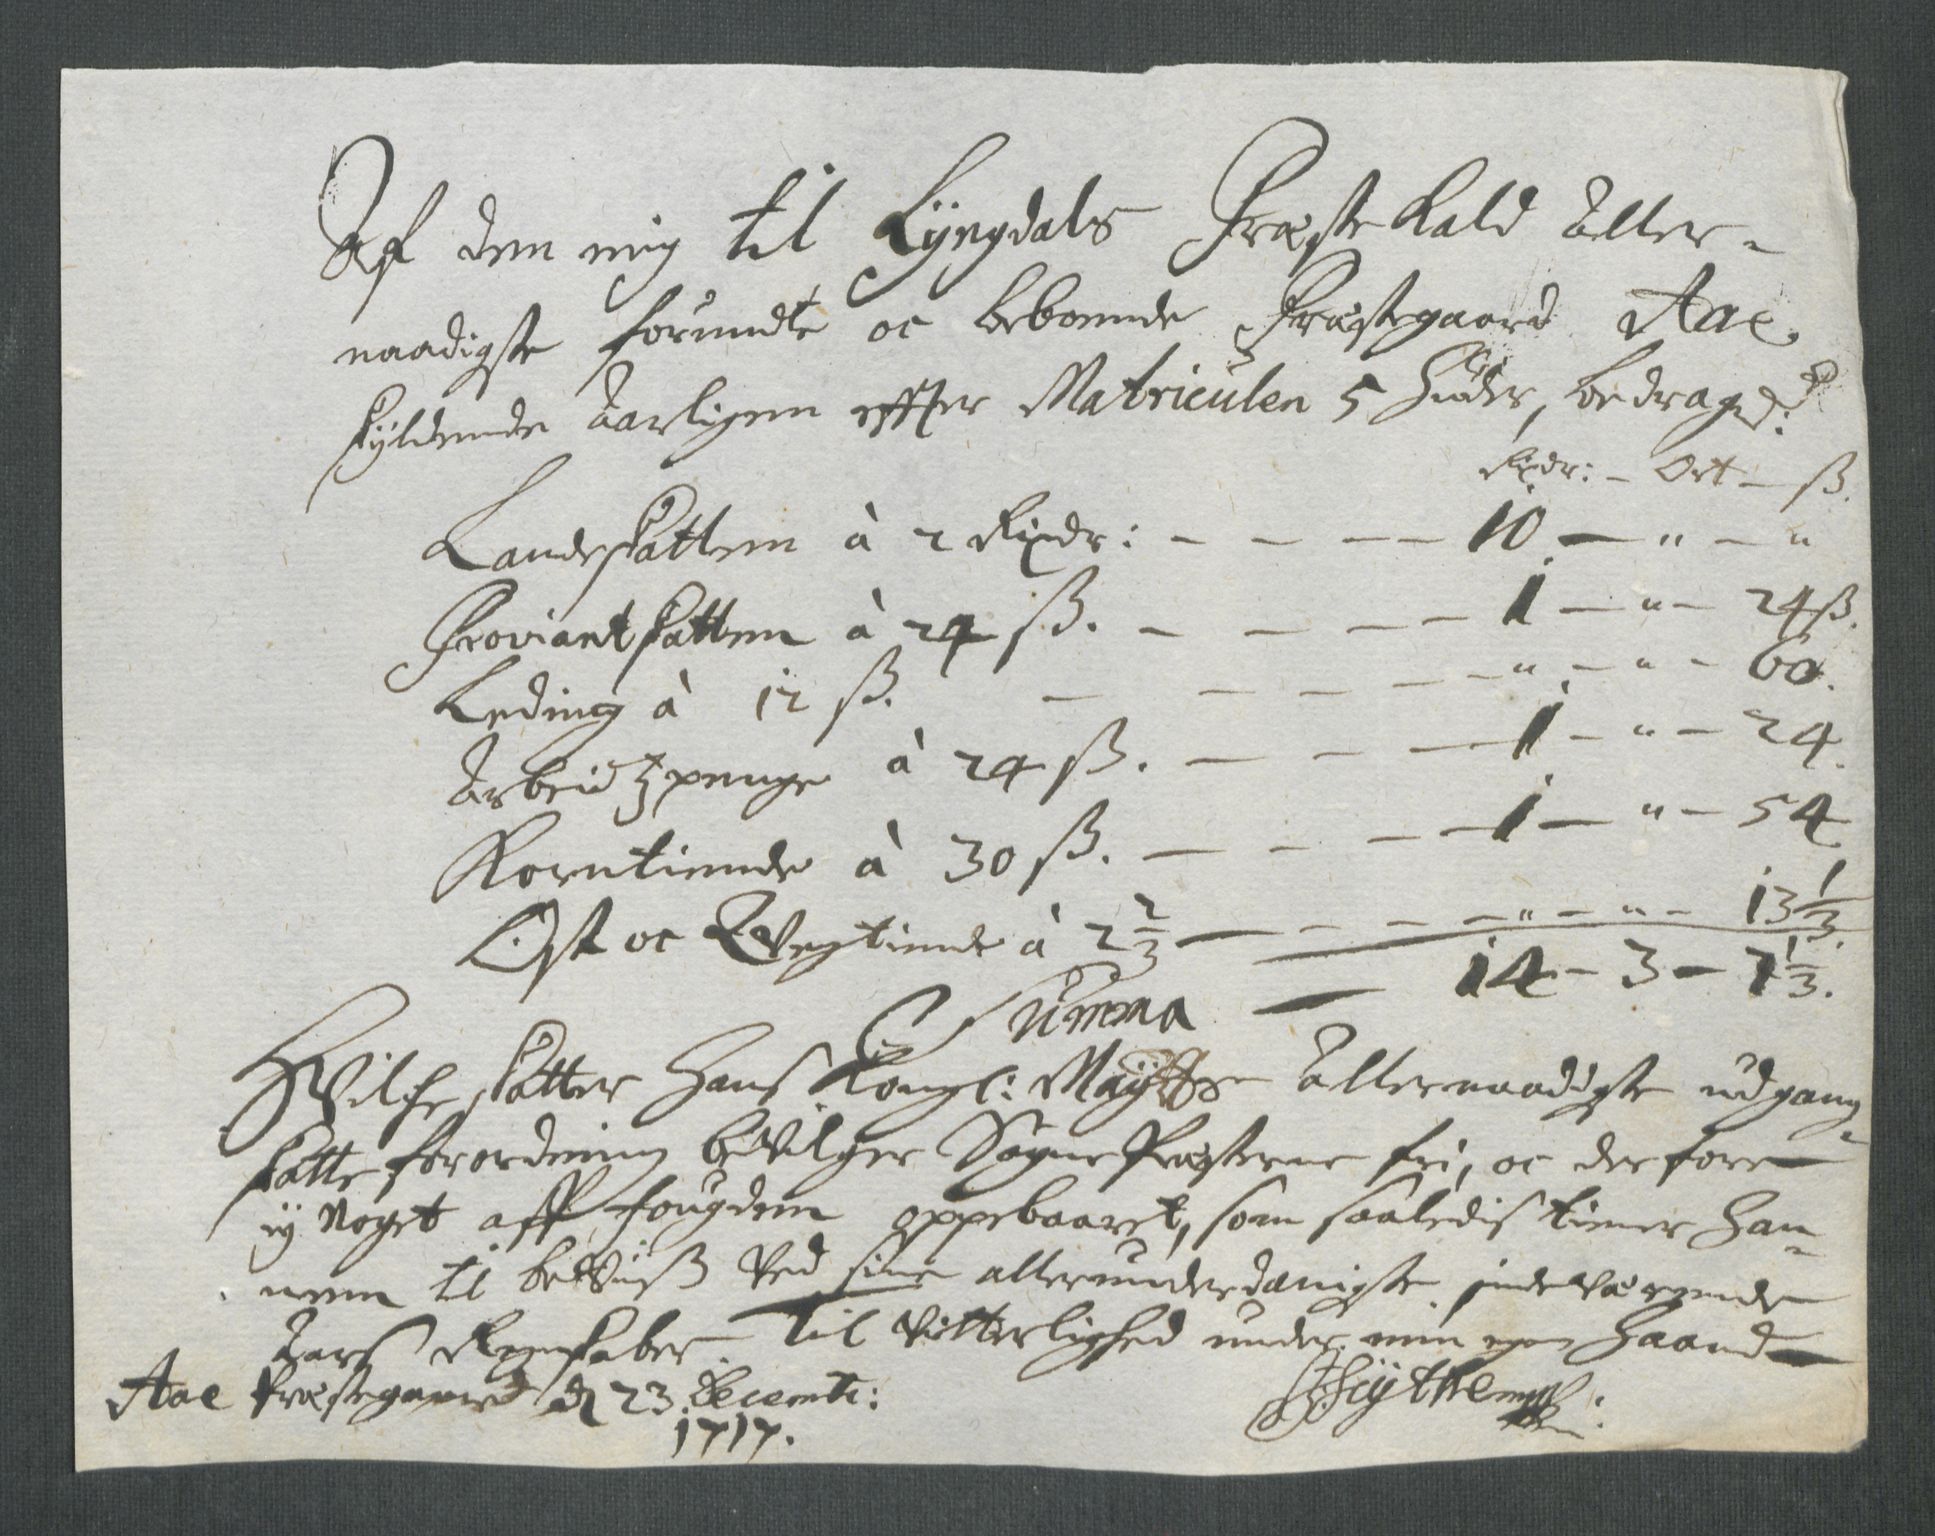 Af dem mig til Lyngdals Præste Kald Aller-
naadigste forundte oc beboende Præstegaard Aae,
skyldende Aarligen effter Matriculen 5 Huder, bedrager
Rixdr: - Ort - ß.
Landskatten à 2 Rixdr: - - - - 10. - " - "
Proviantskatten à 24 ß. - - - - 1 - " - 24 ß.
Leding à 12 ß. - - - - - " - " - 60.
Arbeidzpenge à 24 ß. - - - 1 - " - 24.
Korntiende à 30 ß. - - - - 1 - " - 54
Ost oc Qvegtiende à 2 2/3 - - - - " - " - 13 1/3.
Summa - 14 - 3 - 7 1/3.
Hvilche skatter Hans Kongl: Mayts Allernaadigste udgang-
skatte forordning bevilger Sogne Præsterne fri, oc derfore
ey noget aff fougden oppebaaret, som saaledis tiener Han-
nem til beviiß ved sine allerunderdanigste indeværende
Aars Regnskaber. Til vitterlighed under min egen Haand
Aae Præstegaard d 23 Decemb:
1717.